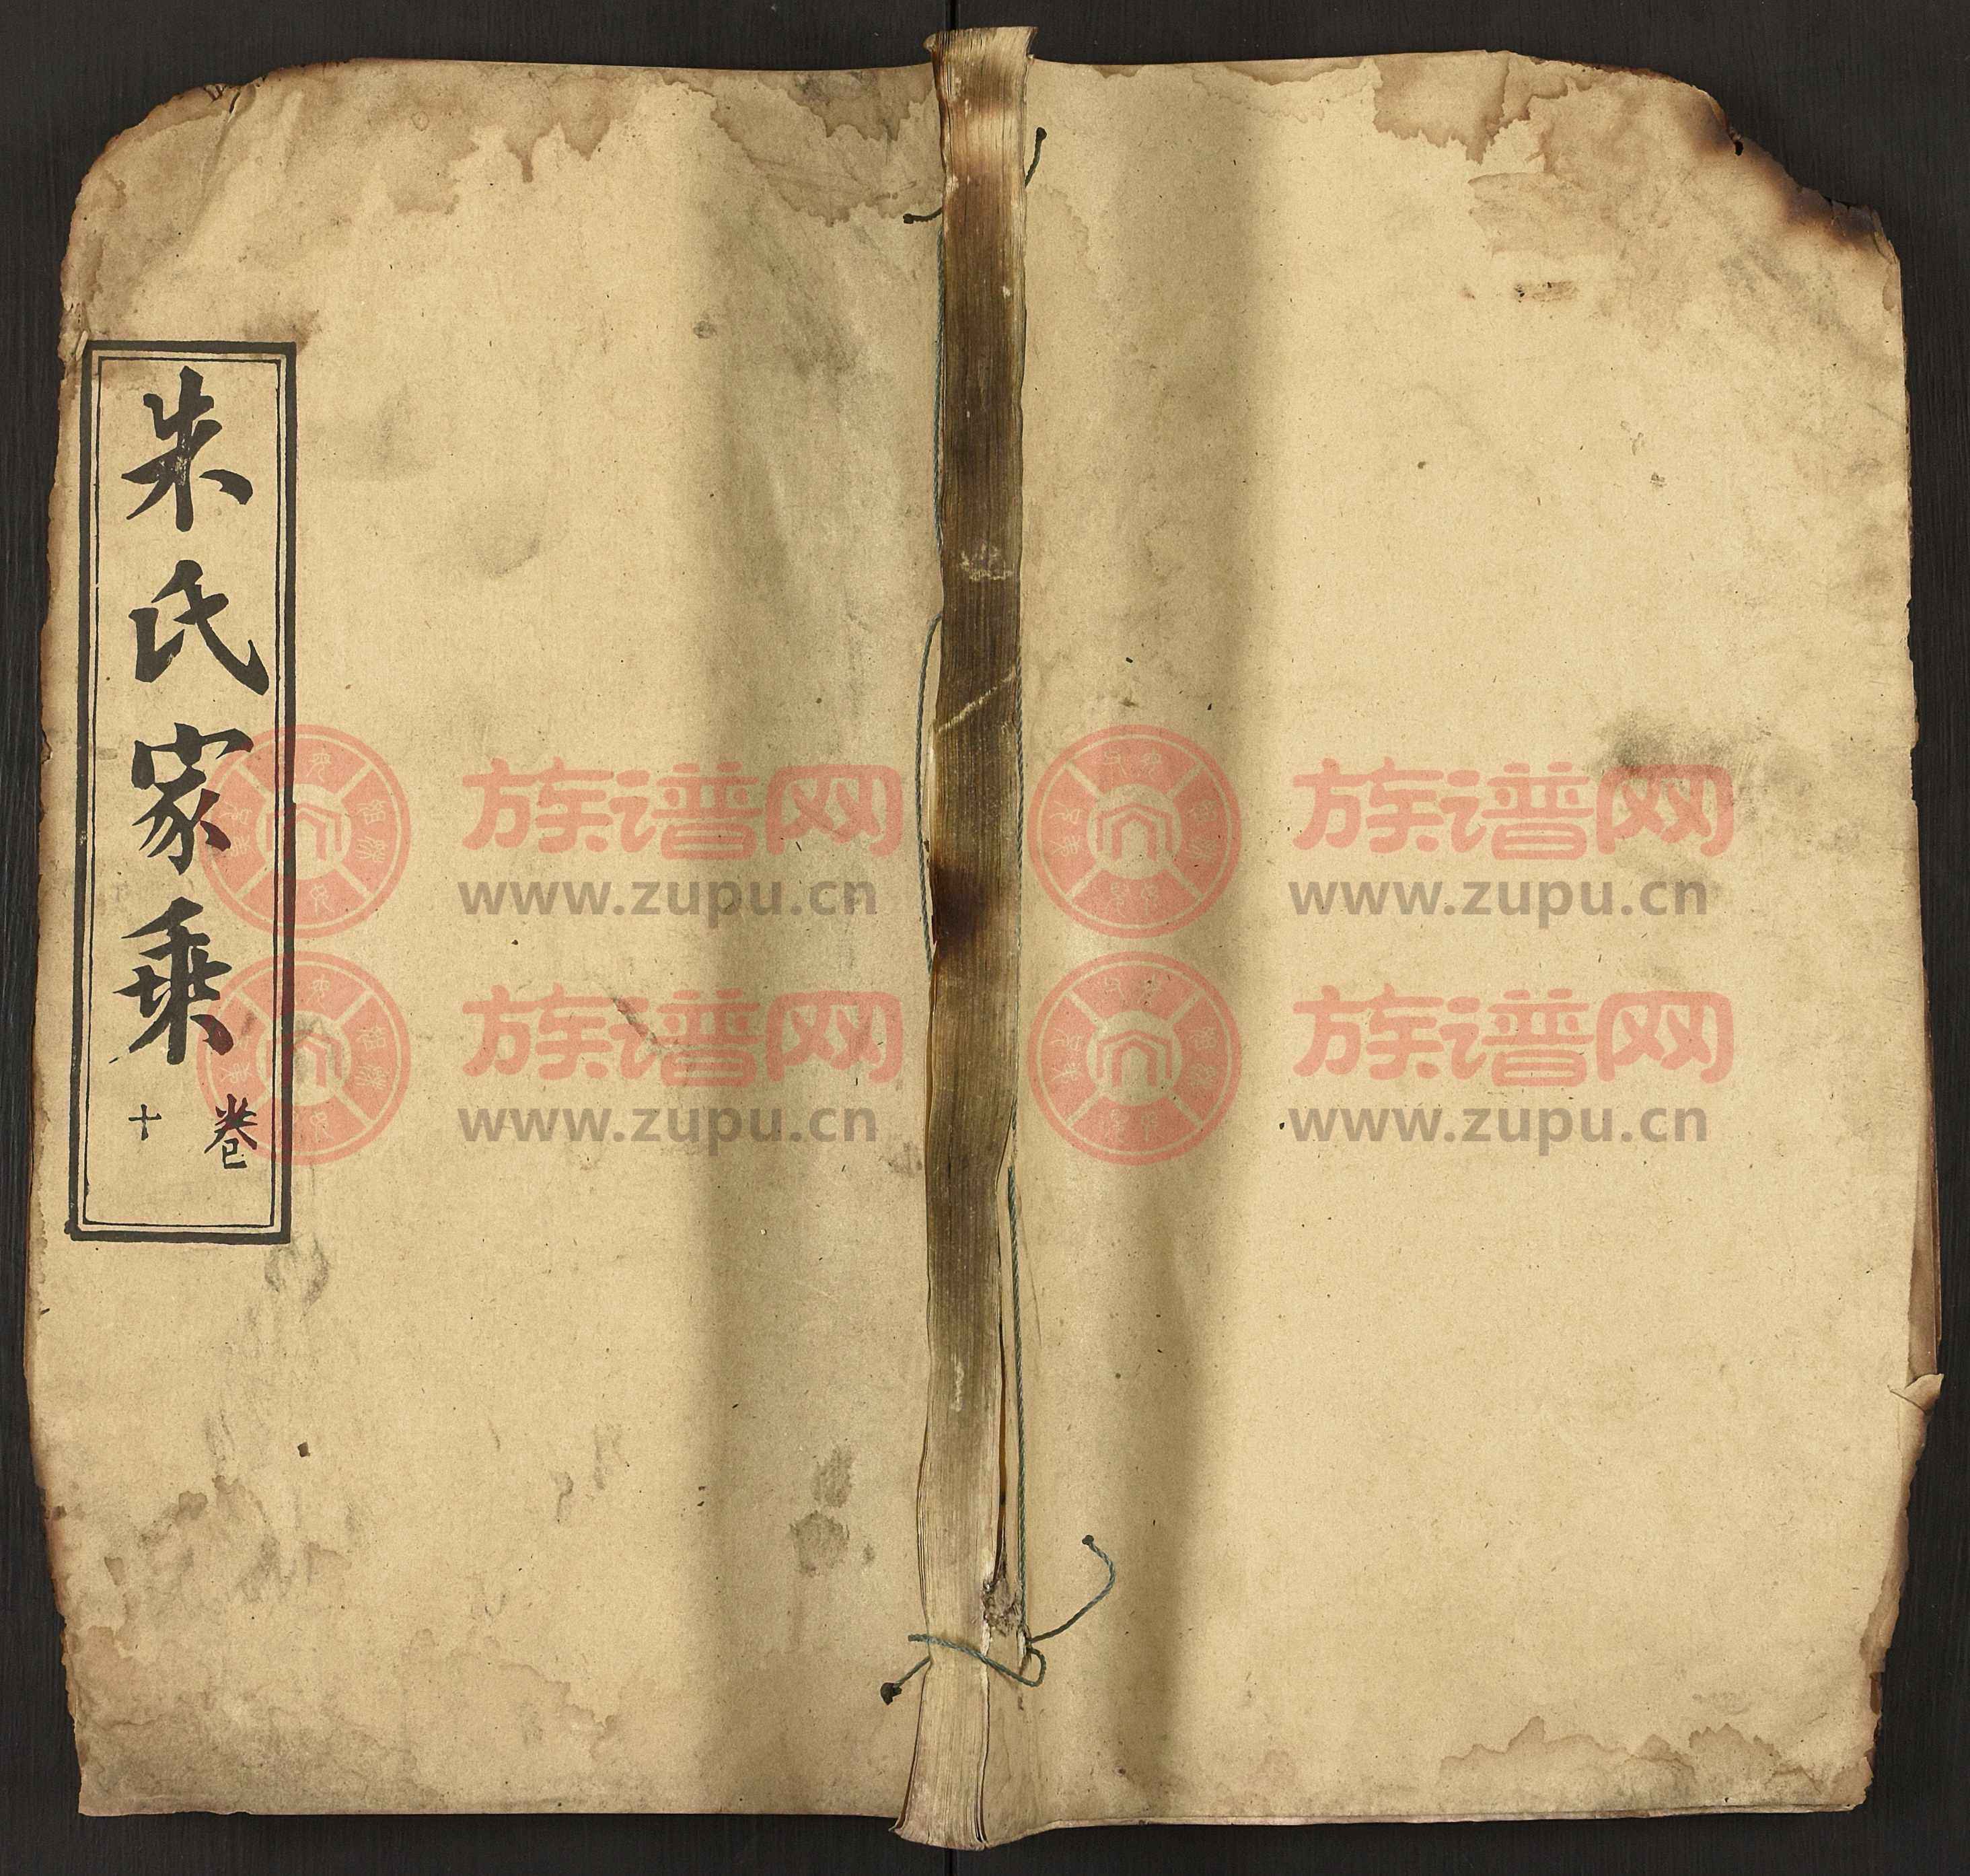 朱氏家乘
卷
十
族谱网
www.zupu.cn
族谱网
www.zupu.cn
族谱网
www.zupu.cn
族谱网
www.zupu.cn